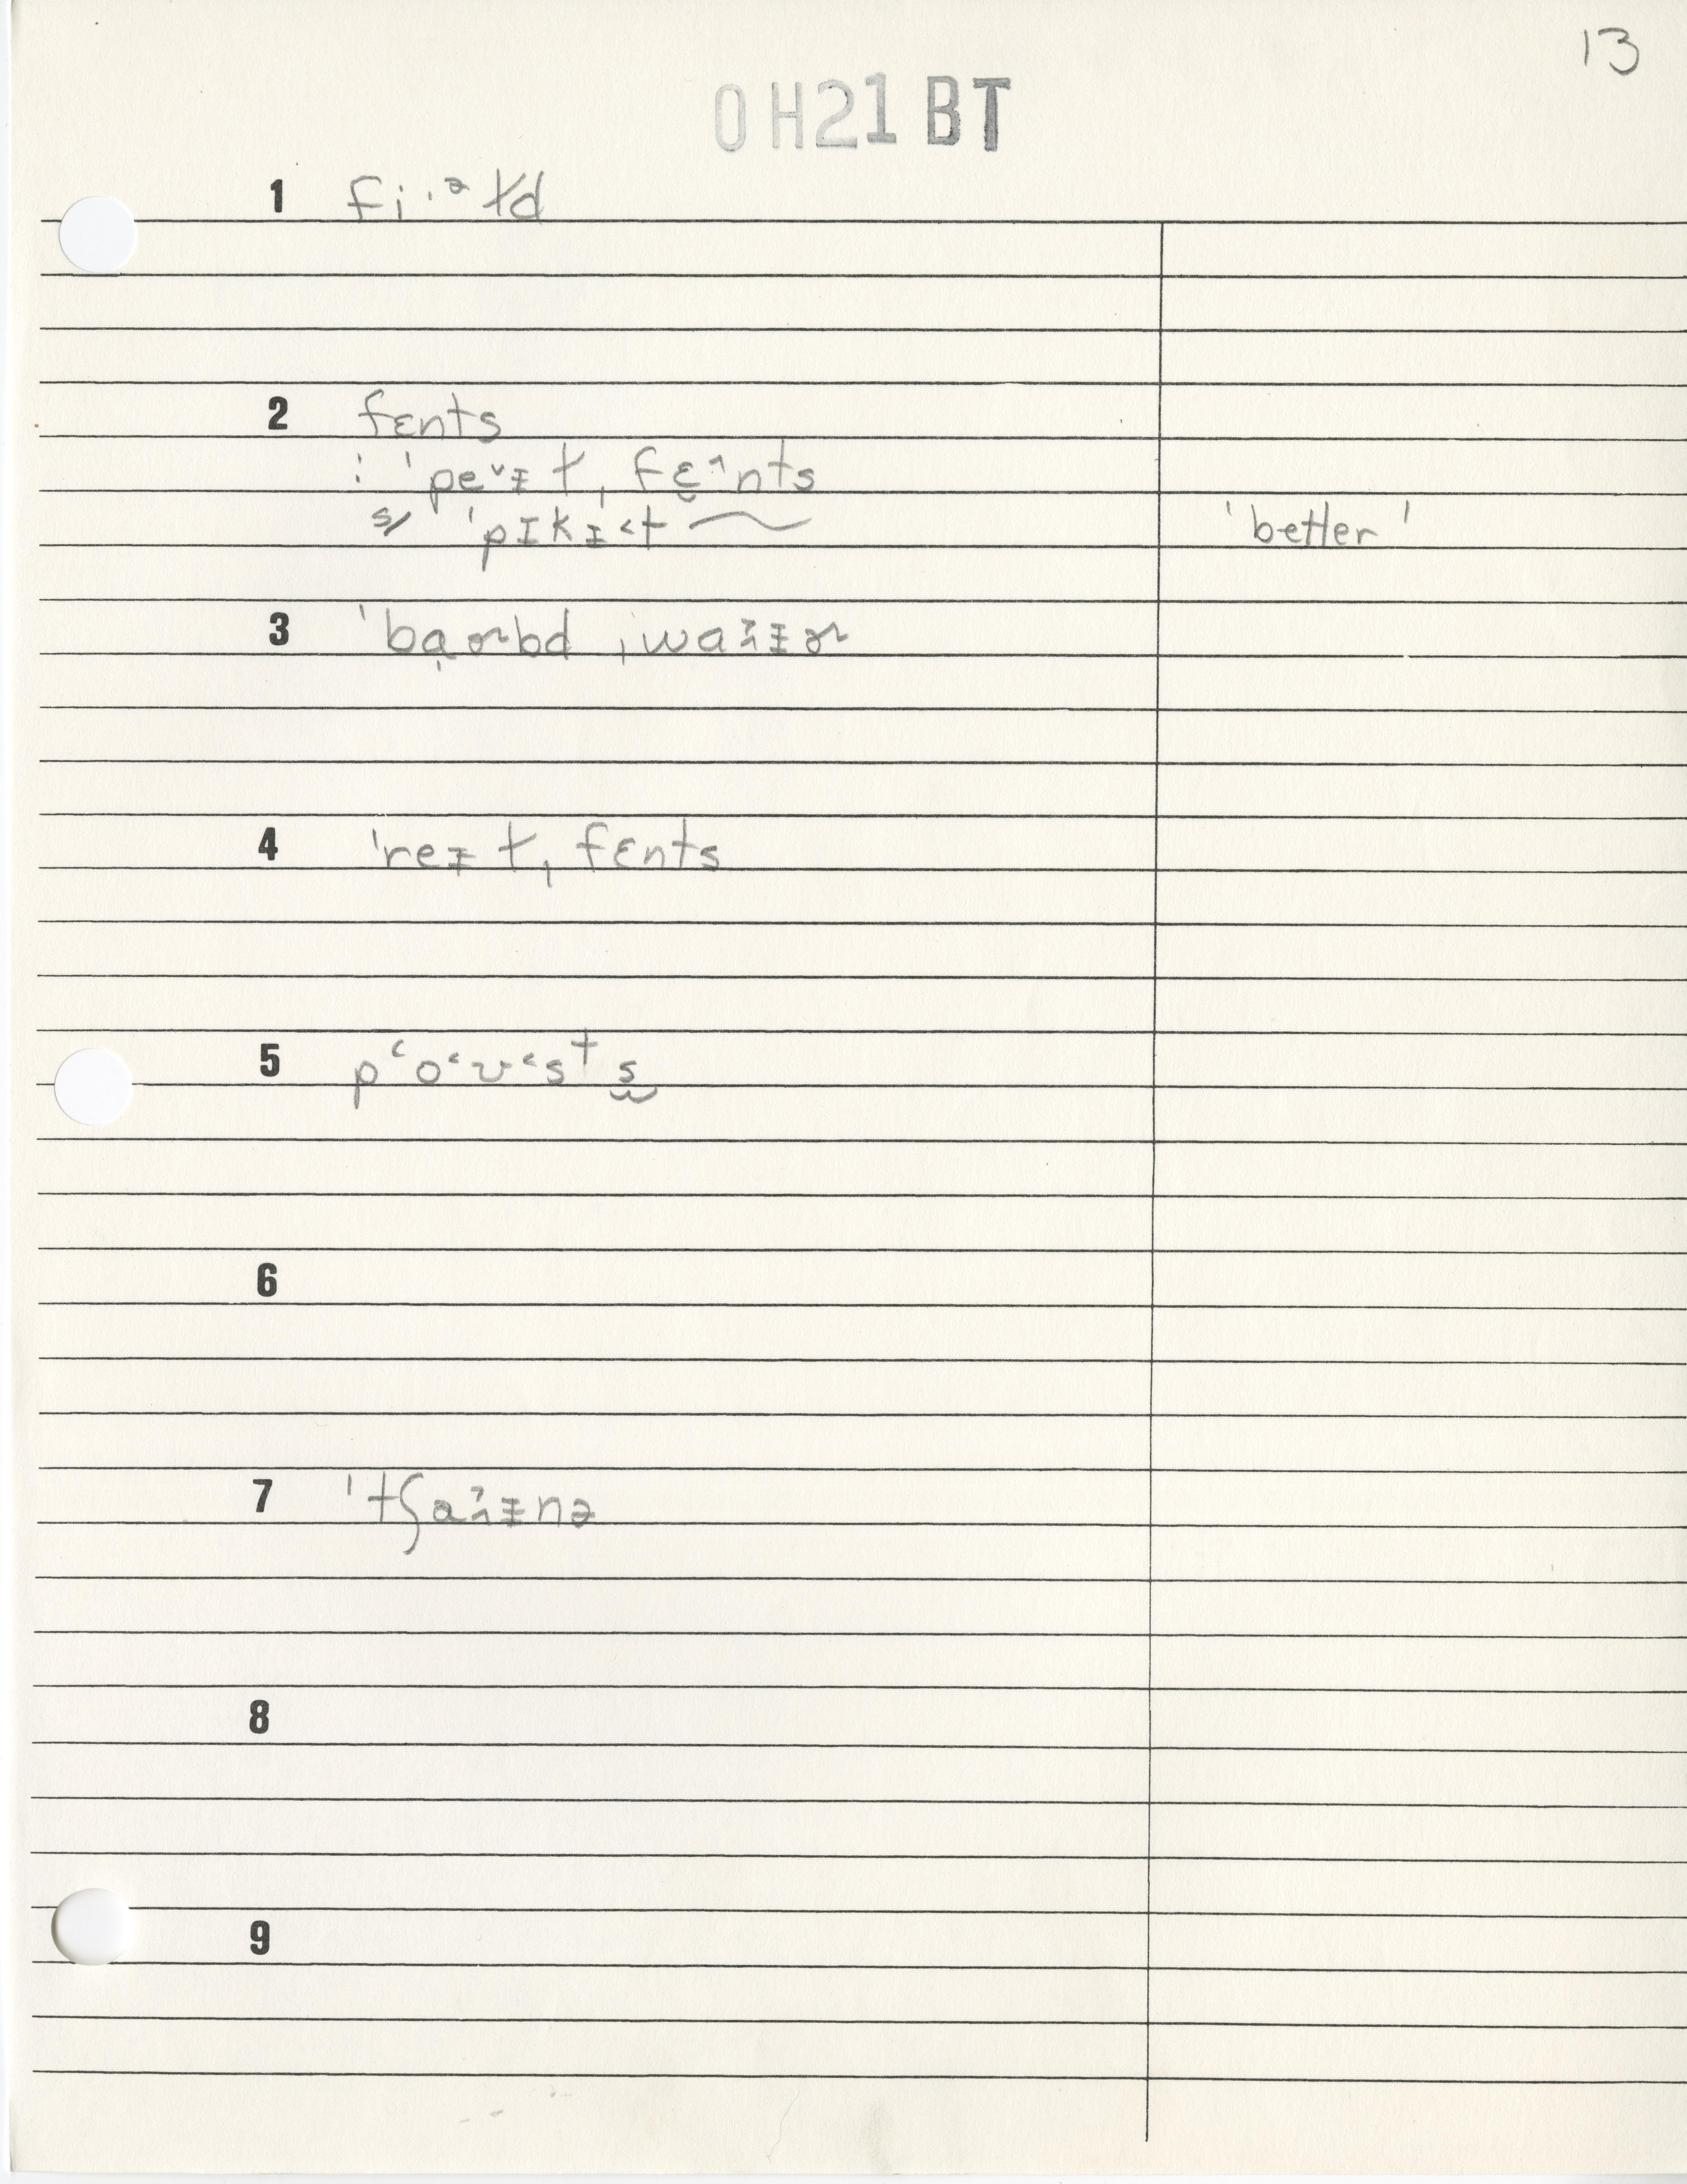 13
OH21BT
1 fi·ᵊɫd
2 fɛnts
: ˈpe˅ɪɫˌfɛ̯^nts
s/ ˈpɪkɪ˂t ⁓ 'better'
3 ˈbạɚbd ˌwaɪ̵ɚ
4 ˈreɪɫˌfɛnts
5 pʻo˂ʊ˂st s̫
6
7 ˈtʃaɪ̵nə
8
9